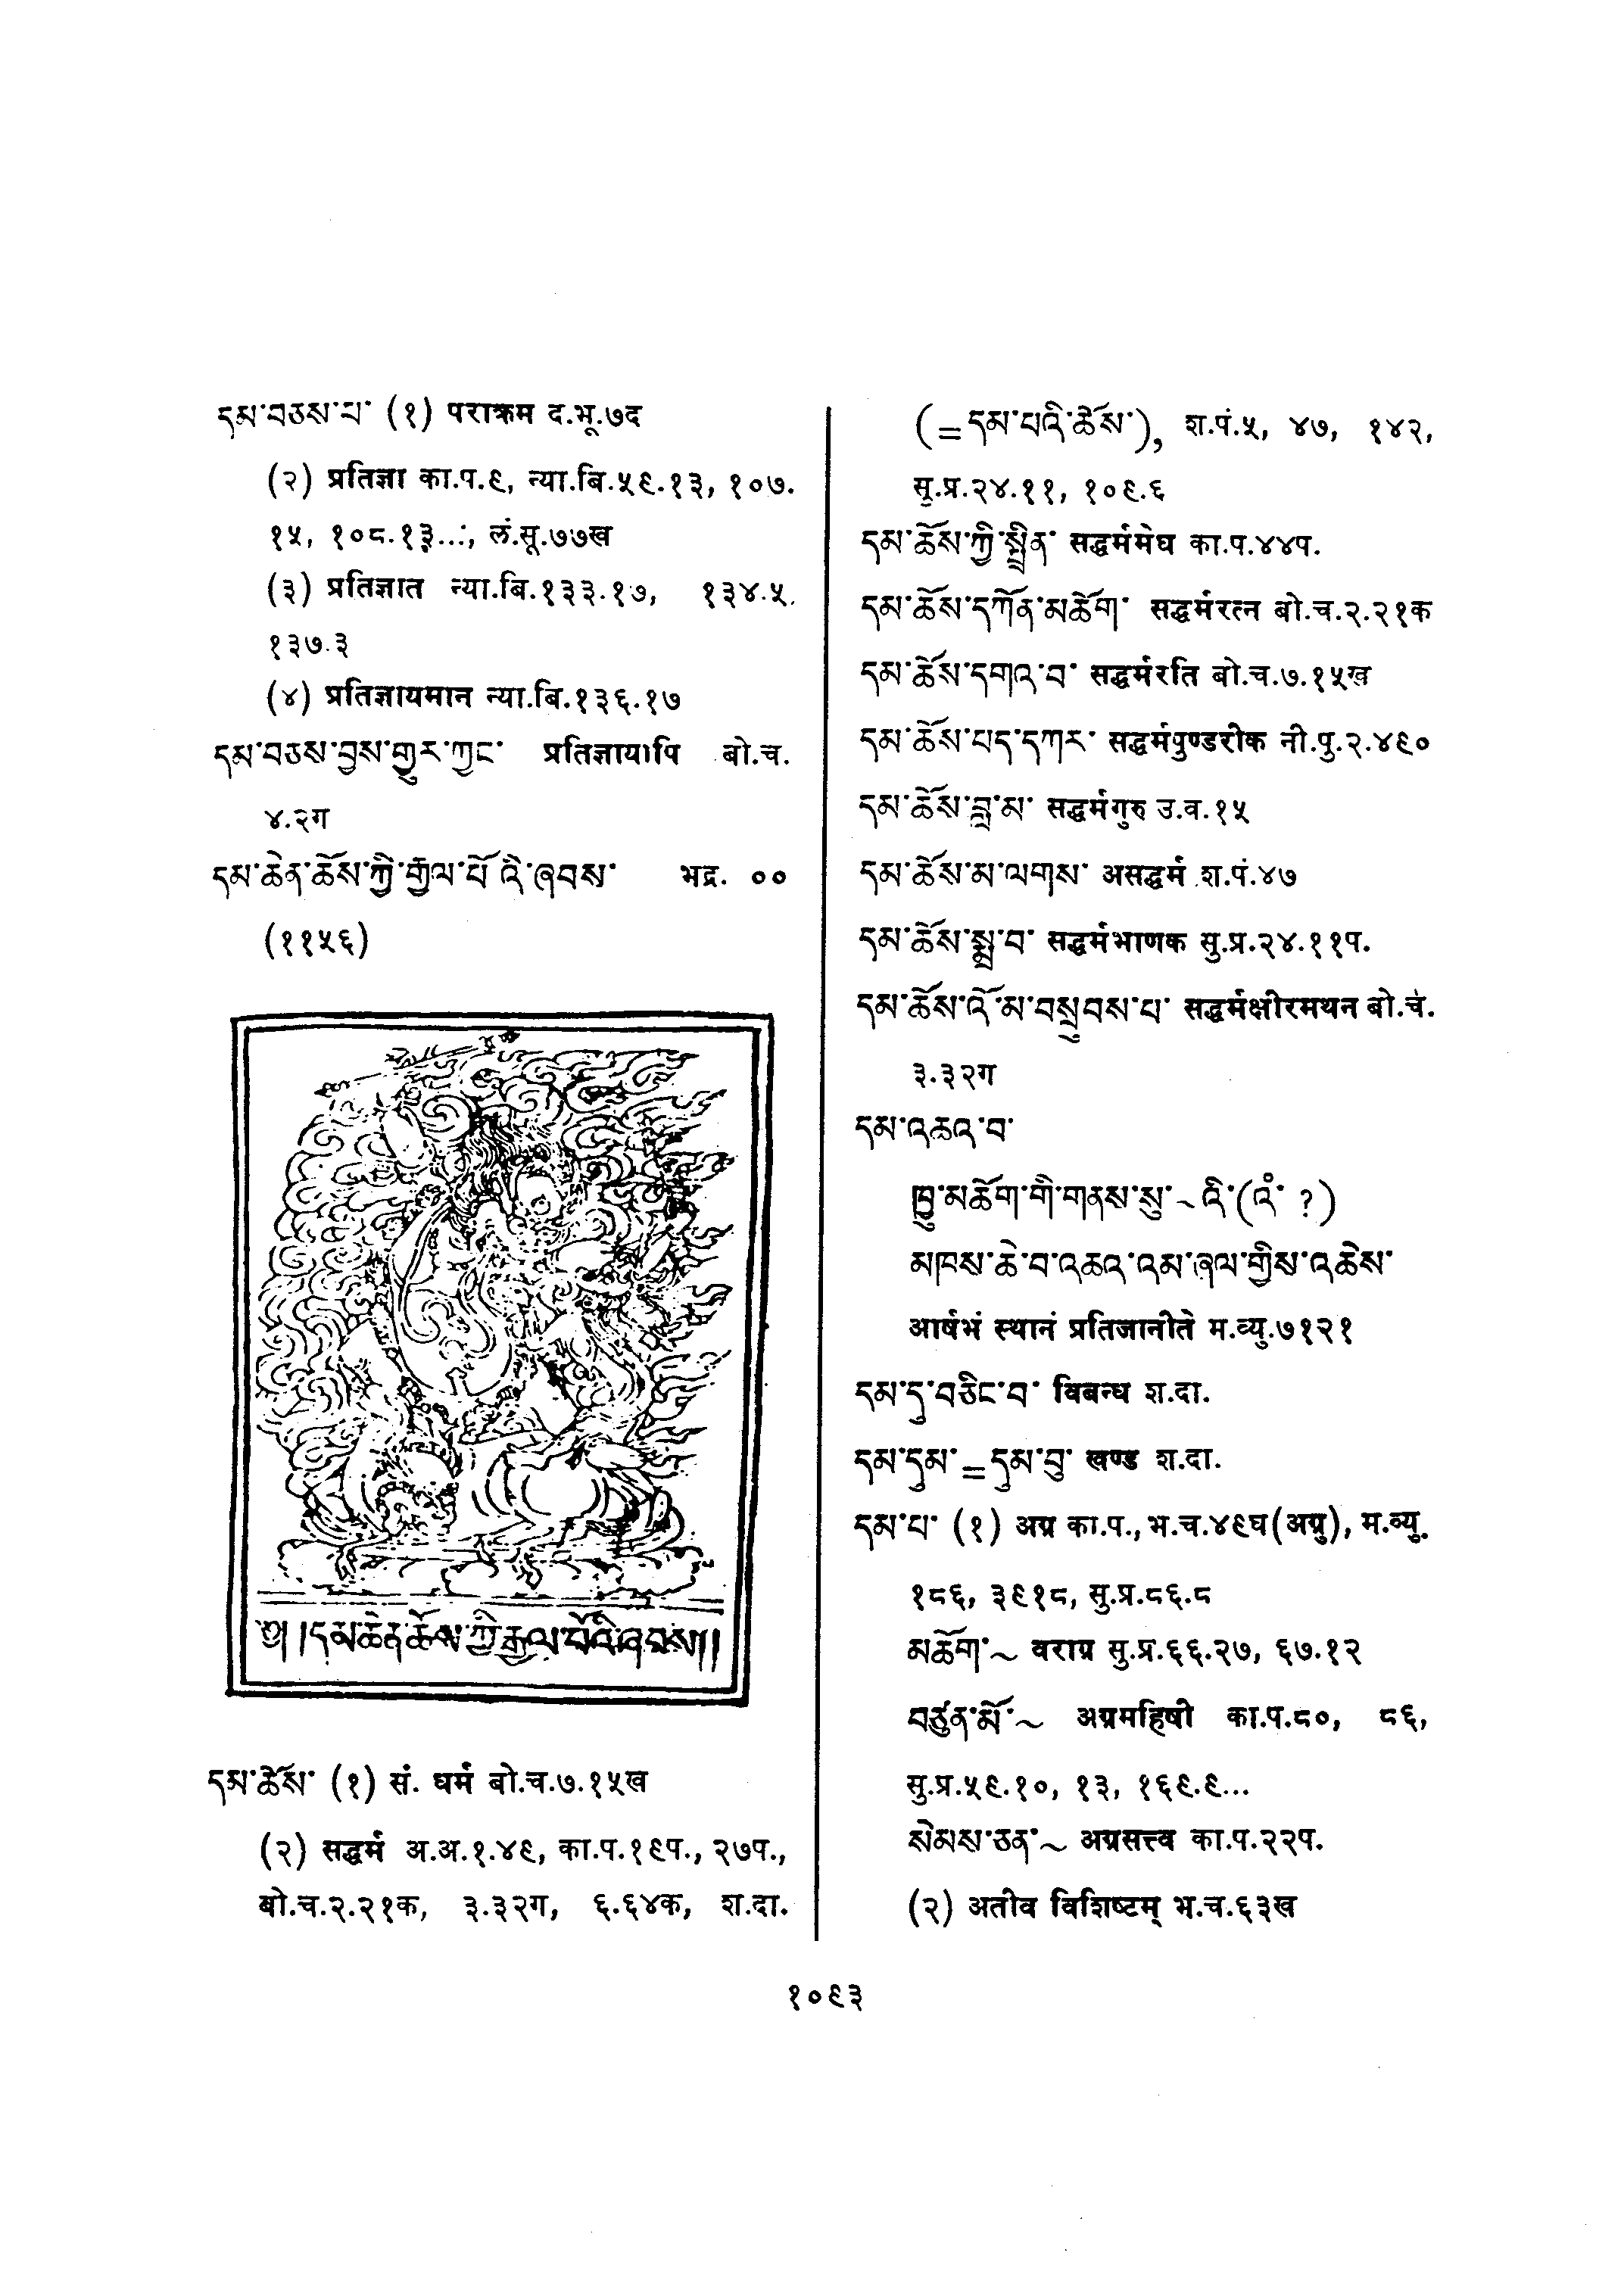 དམ་བཅས་པ་ (१) पराक्रम द.भू.७द
(२) प्रतिज्ञा का.प.९, न्या.बि.५९.१३, १०७.
१५, १०८.१३...; लं.सू.७७ख
(३) प्रतिज्ञात न्या.बि.१३३.१७, १३४.५,
१३७.३
(४) प्रतिज्ञायमान न्या.बि.१३६.१७
དམ་བཅས་བྱས་གྱུར་ཀྱང་ प्रतिज्ञायापि बो.च.
४.२ग
དམ་ཆེན་ཆོས་ཀྱི་རྒྱལ་པོ་འི་ཞབས་ भद्र. ००
(११५६)
༄། །དམ་ཆེན་ཆོས་ཀྱི་རྒྱལ་པོའི་ཞབས།།
དམ་ཆོས་ (१) सं. धर्म बो.च.७.१५ख
(२) सद्धर्म अ.अ.१.४९, का.प.१९प., २७प.,
बो.च.२.२१क, ३.३२ग, ६.६४क, श.दा.
(=དམ་པའི་ཆོས་), श.पं.५, ४७, १४२,
सु.प्र.२४.११, १०९.६
དམ་ཆོས་ཀྱི་སྤྲིན་ सद्धर्ममेघ का.प.४४प.
དམ་ཆོས་དཀོན་མཆོག་ सद्धर्मरत्न बो.च.२.२१क
དམ་ཆོས་དགའ་བ་ सद्धर्मरति बो.च.७.१५ख
དམ་ཆོས་པད་དཀར་ सद्धर्मपुण्डरीक नी.पु.२.४९०
དམ་ཆོས་བླ་མ་ सद्धर्मगुरु उ.व.१५
དམ་ཆོས་མ་ལགས་ असद्धर्म श.पं.४७
དམ་ཆོས་སྨྲ་བ་ सद्धर्मभाणक सु.प्र.२४.११प.
དམ་ཆོས་འོ་མ་བསྲུབས་པ་ सद्धर्मक्षीरमथन बो.च.
३.३२ग
དམ་འཆའ་བ་
ཁྱུ་མཆོག་གི་གནས་སུ་~འི་(འཾ་ ?)
མཁས་ཆེ་བ་འཆའ་འམ་ཞལ་གྱིས་འཆེས་
आर्षभं स्थानं प्रतिजानीते म.व्यु.७१२१
དམ་དུ་བཅིང་བ་ विबन्ध श.दा.
དམ་དུམ་=དུམ་བུ་ खण्ड श.दा.
དམ་པ་ (१) अग्र का.प., भ.च.४९घ(अग्रु), म.व्यु.
१८६, ३९१८, सु.प्र.८६.८
མཆོག་~ वराग्र सु.प्र.६६.२७, ६७.१२
བཙུན་མོ་~ अग्रमहिषी का.प.८०, ८६,
सु.प्र.५९.१०, १३, १६९.९...
སེམས་ཅན་~ अग्रसत्त्व का.प.२२प.
(२) अतीव विशिष्टम् भ.च.६३ख
१०९३